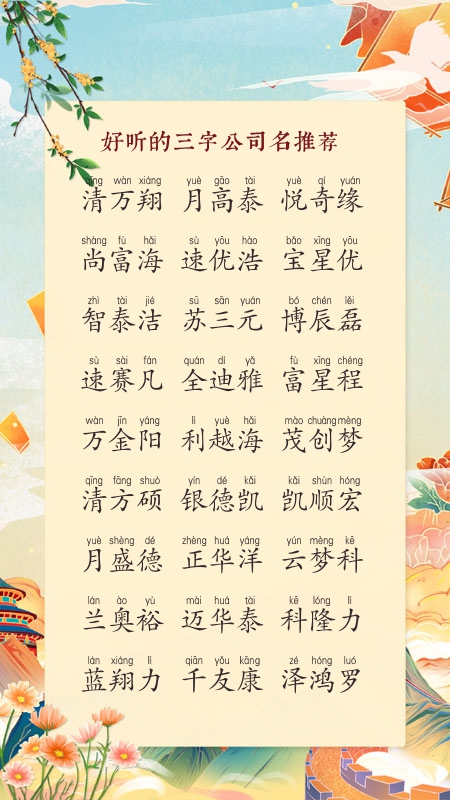 好听的三字公司名推荐
qīng wàn xiáng yuè gāo tài yuè qí yuán
清万翔 月高泰 悦奇缘
shàng fù hǎi sù yōu hào bǎo xīng yōu
尚富海 速优浩 宝星优
zhì tài jié sū sān yuán bó chén lěi
智泰洁 苏三元 博辰磊
sù sài fán quán dí yǎ fù xīng chéng
速赛凡 全迪雅 富星程
wàn jīn yáng lì yuè hǎi mào chuàng mèng
万金阳 利越海 茂创梦
qīng fāng shuò yín dé kǎi kǎi shùn hóng
清方硕 银德凯 凯顺宏
yuè shèng dé zhèng huá yáng yún mèng kē
月盛德 正华洋 云梦科
lán ào yù mài huá tài kē lóng lì
兰奥裕 迈华泰 科隆力
lán xiáng lì qiān yǒu kāng zé hóng luó
蓝翔力 千友康 泽鸿罗